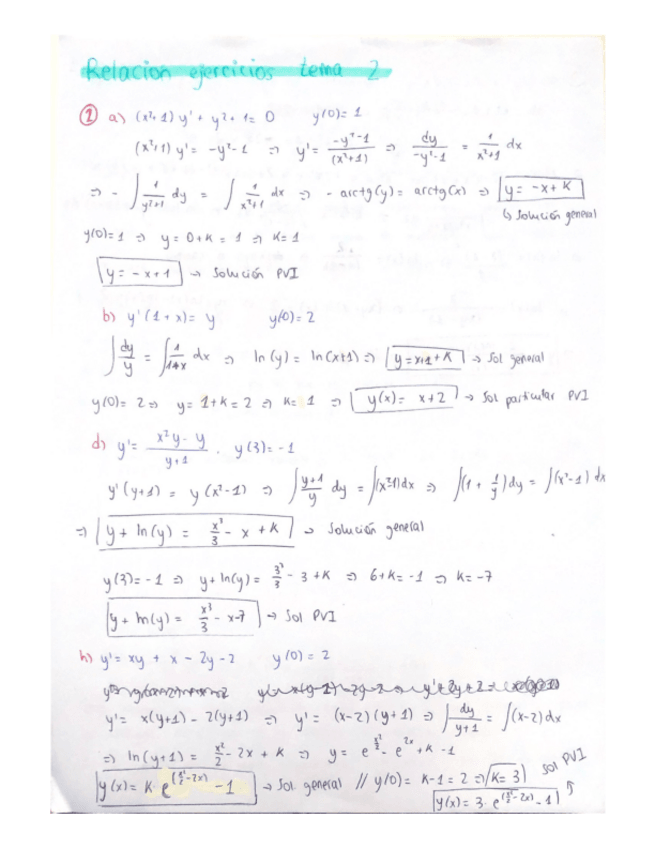 Relacion ejercicios tema 2
① a) (x²+1) y' + y² + 1 = 0 y(0) = 1
(x²+1) y' = -y²-1 ⇒ y' = -y²-1 / (x²+1) ⇒ dy / -y²-1 = 1 / x²+1 dx
⇒ - ∫ 1 / y²+1 dy = ∫ 1 / x²+1 dx ⇒ - arctg(y) = arctg(x) ⇒ y = -x + K
↳ Solución general
y(0)=1 ⇒ y = 0+K = 1 ⇒ K=1
y = -x+1 → Solución PVI
b) y'(1+x) = y y(0) = 2
∫ dy / y = ∫ 1 / 1+x dx ⇒ ln(y) = ln(x+1) ⇒ y = x+1+K → Sol general
y(0) = 2 ⇒ y = 1+K = 2 ⇒ K = 1 ⇒ y(x) = x+2 → Sol particular PVI
d) y' = x²y - y / y+1 . y(3) = -1
y'(y+1) = y(x²-1) ⇒ ∫ y+1 / y dy = ∫(x²-1)dx ⇒ ∫(1 + 1/y)dy = ∫(x²-1) dx
⇒ y + ln(y) = x³/3 - x + K → Solución general
y(3) = -1 ⇒ y + ln(y) = 3³/3 - 3 + K ⇒ 6+K = -1 ⇒ K = -7
y + ln(y) = x³/3 - x-7 → Sol PVI
h) y' = xy + x - 2y - 2 y(0) = 2
y' = x(y+1) - 2(y+1) ⇒ y' = (x-2)(y+1) ⇒ ∫ dy / y+1 = ∫(x-2)dx
⇒ ln(y+1) = x²/2 - 2x + K ⇒ y = e^(x²/2) - e^(2x) + K - 1
y(x) = K·e^(x²/2 - 2x) - 1 → Sol general // y(0) = K-1 = 2 ⇒ K = 3 Sol PVI
y(x) = 3·e^(x²/2 - 2x) - 1